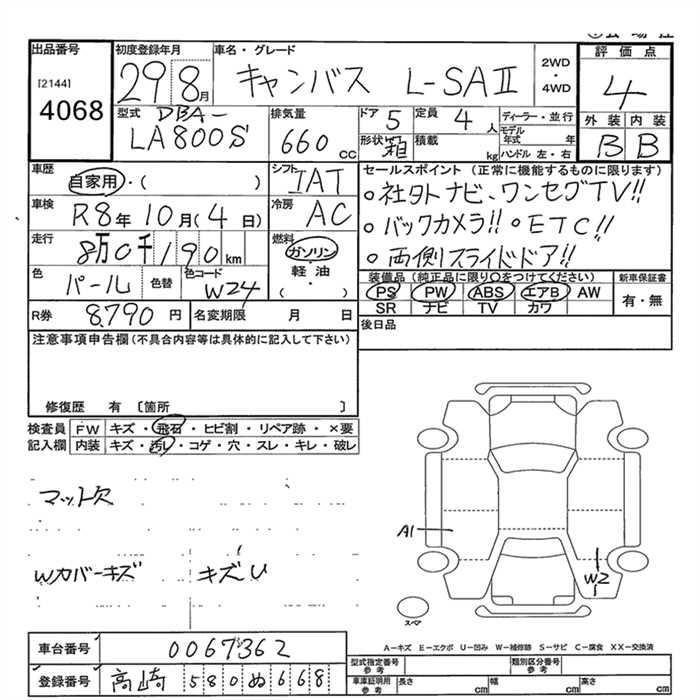 出品番号
[2144]
4068
初度登録年月
29 8月
車名・グレード
キャンバス L-SAⅡ
2WD
・
4WD
評価点
4
外装 内装
B B
型式
DBA-
LA800S
排気量
660 cc
ドア 5
形状 箱
定員 4人
積載 kg
ディーラー・並行
モデル年式 年
ハンドル 左・右
車歴
自家用・( )
シフト
IAT
車検
R8年10月(4日)
冷房
AC
走行
8万0千190km
燃料
ガソリン
・
軽油
( )
色
パール
色替
色コード
W24
セールスポイント (正常に機能するものに限ります)
○社外ナビ、ワンセグTV!!
○バックカメラ!! ○ETC!!
○両側スライドドア!!
装備品(純正品に限り○をつけてください)
PS PW ABS エアB AW
SR ナビ TV カワ
新車保証書
有・無
R券 8,790円
名変期限 月 日
後日品
注意事項申告欄(不具合内容等は具体的に記入して下さい)
修復歴 有 〔箇所 〕
検査員記入欄
FW キズ・飛石・ヒビ割・リペア跡・×要
内装 キズ・汚レ・コゲ・穴・スレ・キレ・破レ
マット欠
Wカバーキズ
キズU
A1
W2
スペア
A-キズ E-エクボ U-凹み W-補修跡 S-サビ C-腐食 XX-交換済
車台番号 0067362
登録番号 高崎 580ぬ668
型式指定番号
参考
類別区分番号
参考
車庫証明用
参考
長さ cm
幅 cm
高さ cm